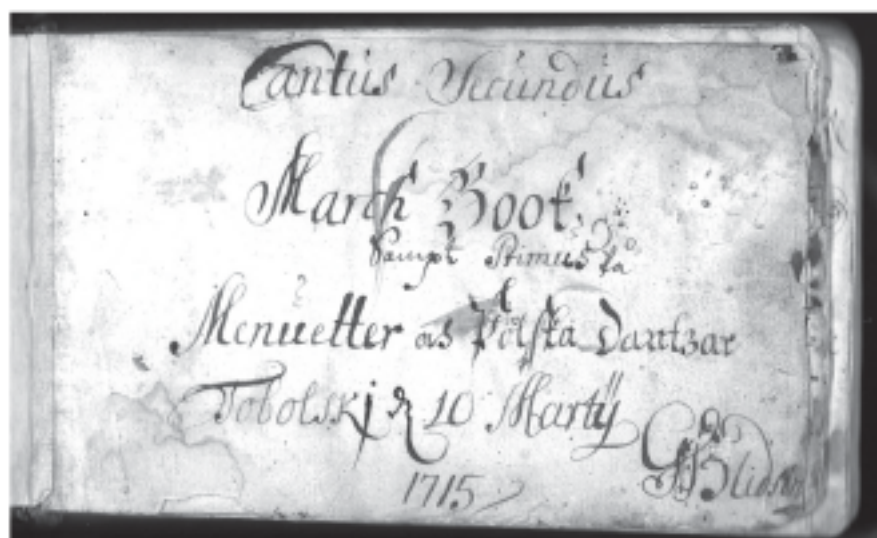 Cantus Secundus
March Book
Sampt Primus
Menuetter och Polska Dantzar
Tobolskj d 10 Martij
1715
G Blidstr